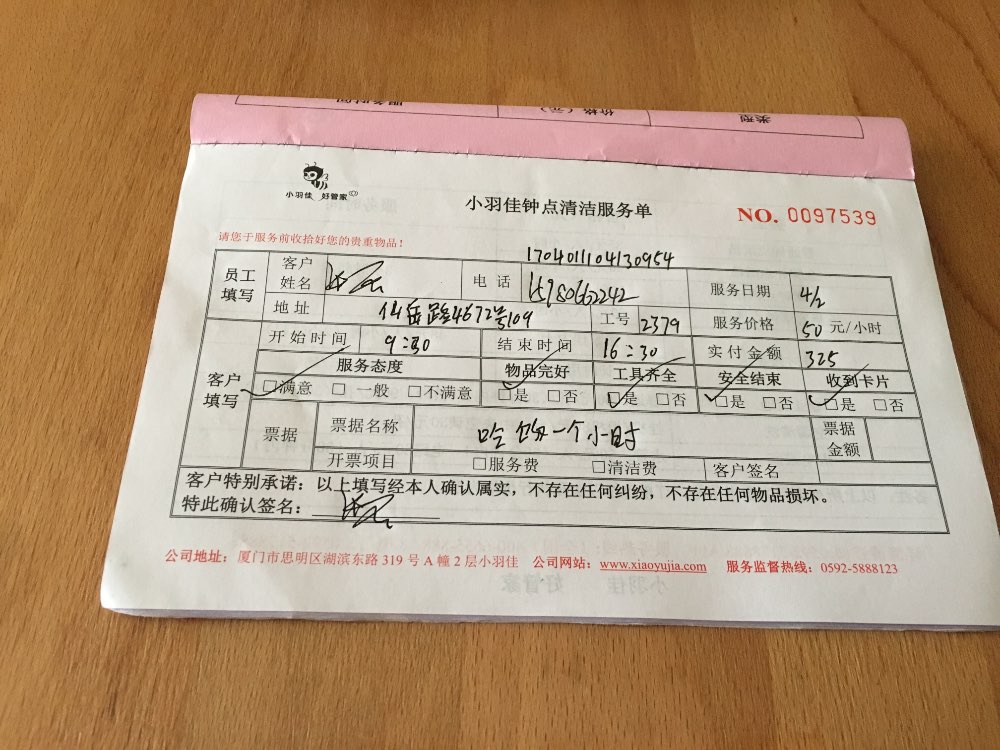 服务时间 价格（元） 类型
小羽佳 好管家
小羽佳钟点清洁服务单
NO. 0097539
请您于服务前收拾好您的贵重物品！
1704011104130954
员工填写 客户姓名 电话 15980662242 服务日期 4/2
地址 仙岳路4672号109 工号 2379 服务价格 50 元/小时
客户填写 开始时间 9:30 结束时间 16:30 实付金额 325
服务态度 物品完好 工具齐全 安全结束 收到卡片
□满意 □一般 □不满意 □是 □否 □是 □否 □是 □否 □是 □否
票据 票据名称 一个小时 票据金额
开票项目 □服务费 □清洁费 客户签名
客户特别承诺：以上填写经本人确认属实，不存在任何纠纷，不存在任何物品损坏。
特此确认签名：
公司地址：厦门市思明区湖滨东路 319 号 A 幢 2 层小羽佳 公司网站：www.xiaoyujia.com 服务监督热线：0592-5888123